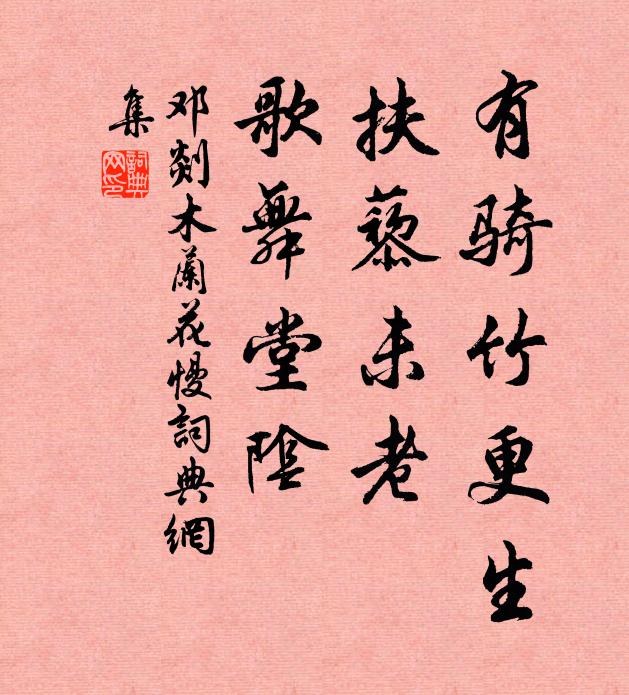 有骑竹更生
扶藜未老
歌舞堂陰
邓剡木蘭花慢詞典網
集
詞典
网印